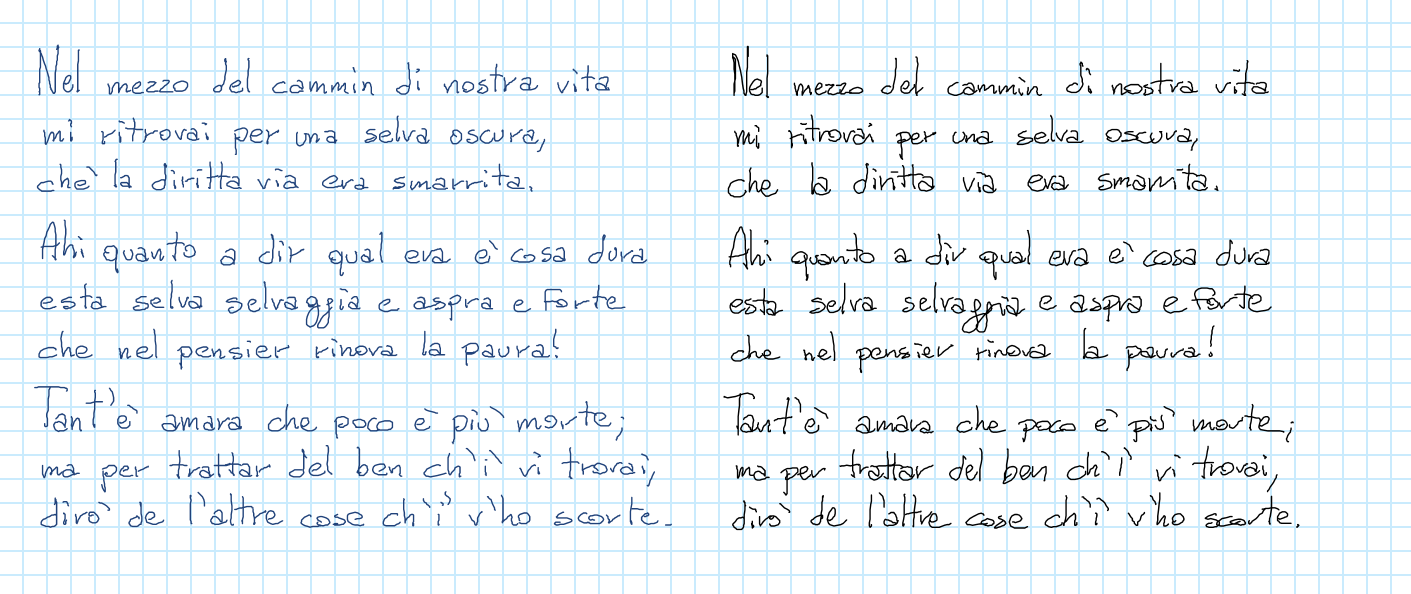 Nel mezzo del cammin di nostra vita
mi ritrovai per una selva oscura,
chè la diritta via era smarrita.
Ahi quanto a dir qual era è cosa dura
esta selva selvaggia e aspra e forte
che nel pensier rinova la paura!
Tant'è amara che poco è più morte;
ma per trattar del ben ch'i' vi trovai,
dirò de l'altre cose ch'i' v'ho scorte.
Nel mezzo del cammin di nostra vita
mi ritrovai per una selva oscura,
che la diritta via era smarrita.
Ahi quanto a dir qual era è cosa dura
esta selva selvaggia e aspra e forte
che nel pensier rinova la paura!
Tant'è amara che poco è più morte;
ma per trattar del ben ch'i' vi trovai,
dirò de l'altre cose ch'i' v'ho scorte.